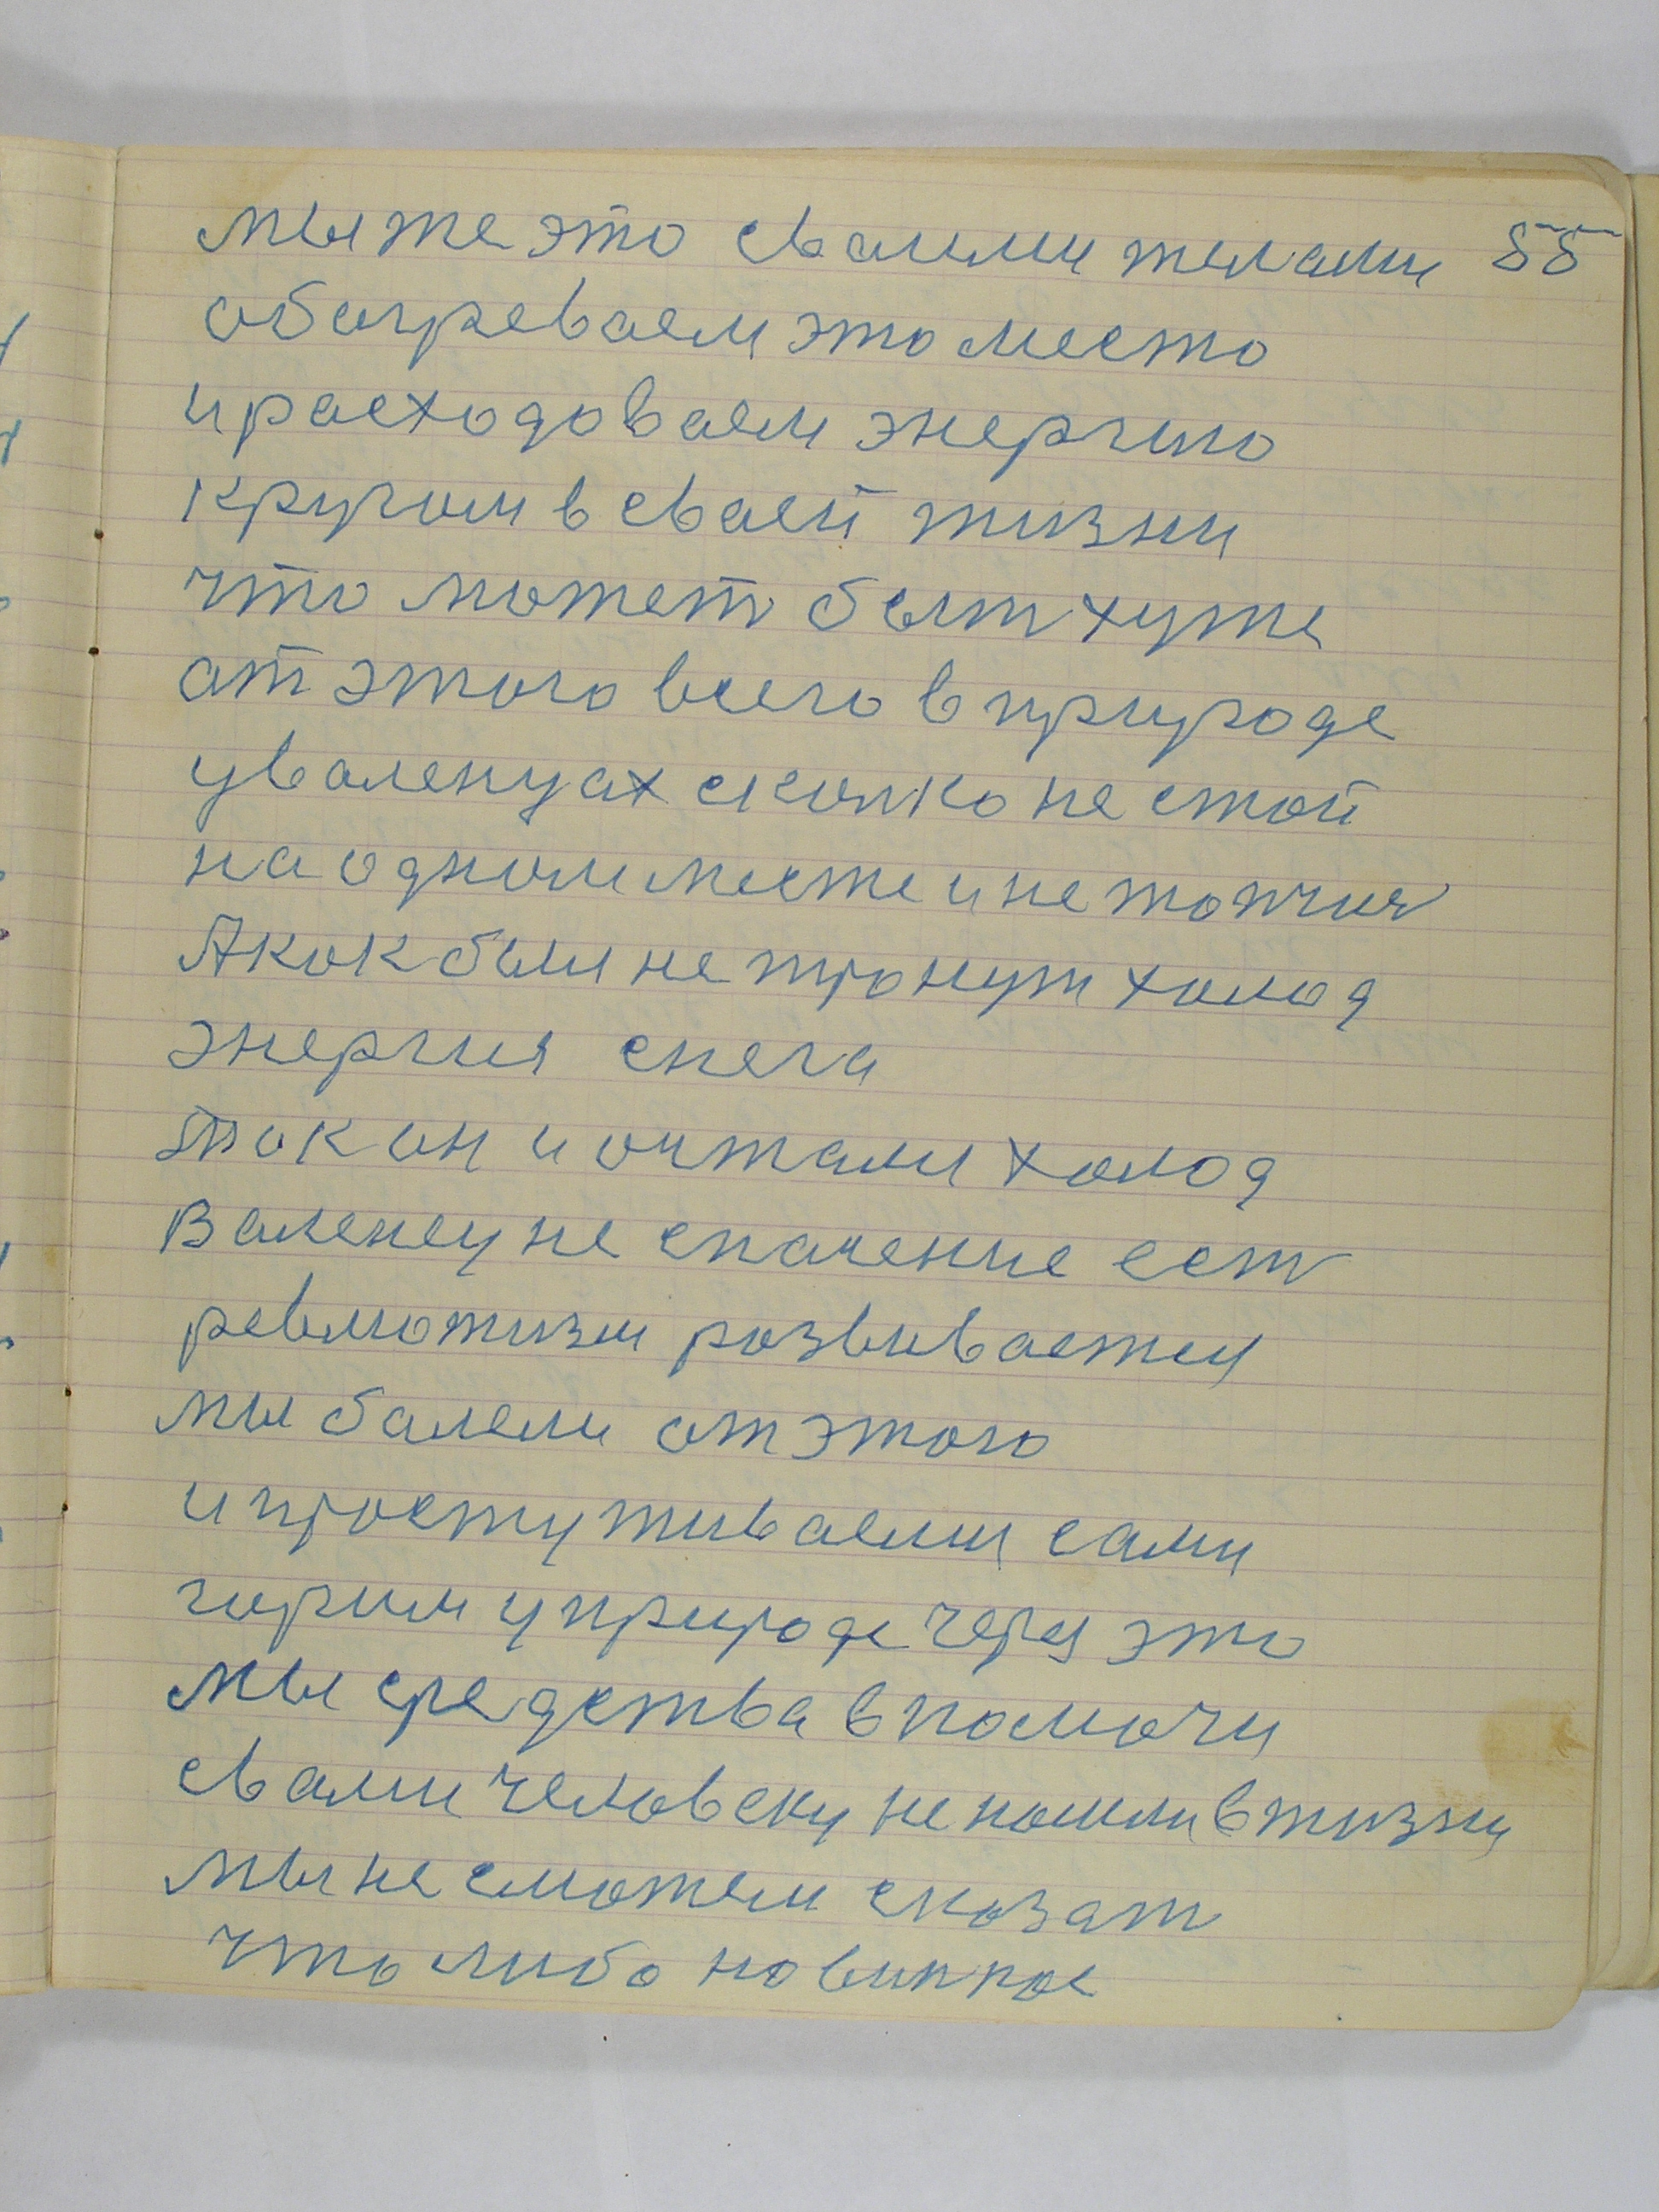 мы же это сваими телами 55
обагреваем это место
и расходоваем энергию
кругом в сваей жизни
что может быт хуже
ат этого всего в природе
у валенцах сколко не стой
на одном месте и не топчися
А как был не тронут холод
энергия снега
так он и астался холод
Валенец не спасение ест
ревмотизм розвивается
мы балели от этого
и простуживаемся сами
горим у природе через это
мы средства в помочи
свами человеку не ношли в жизни
мы не сможем сказат
что либо новинное